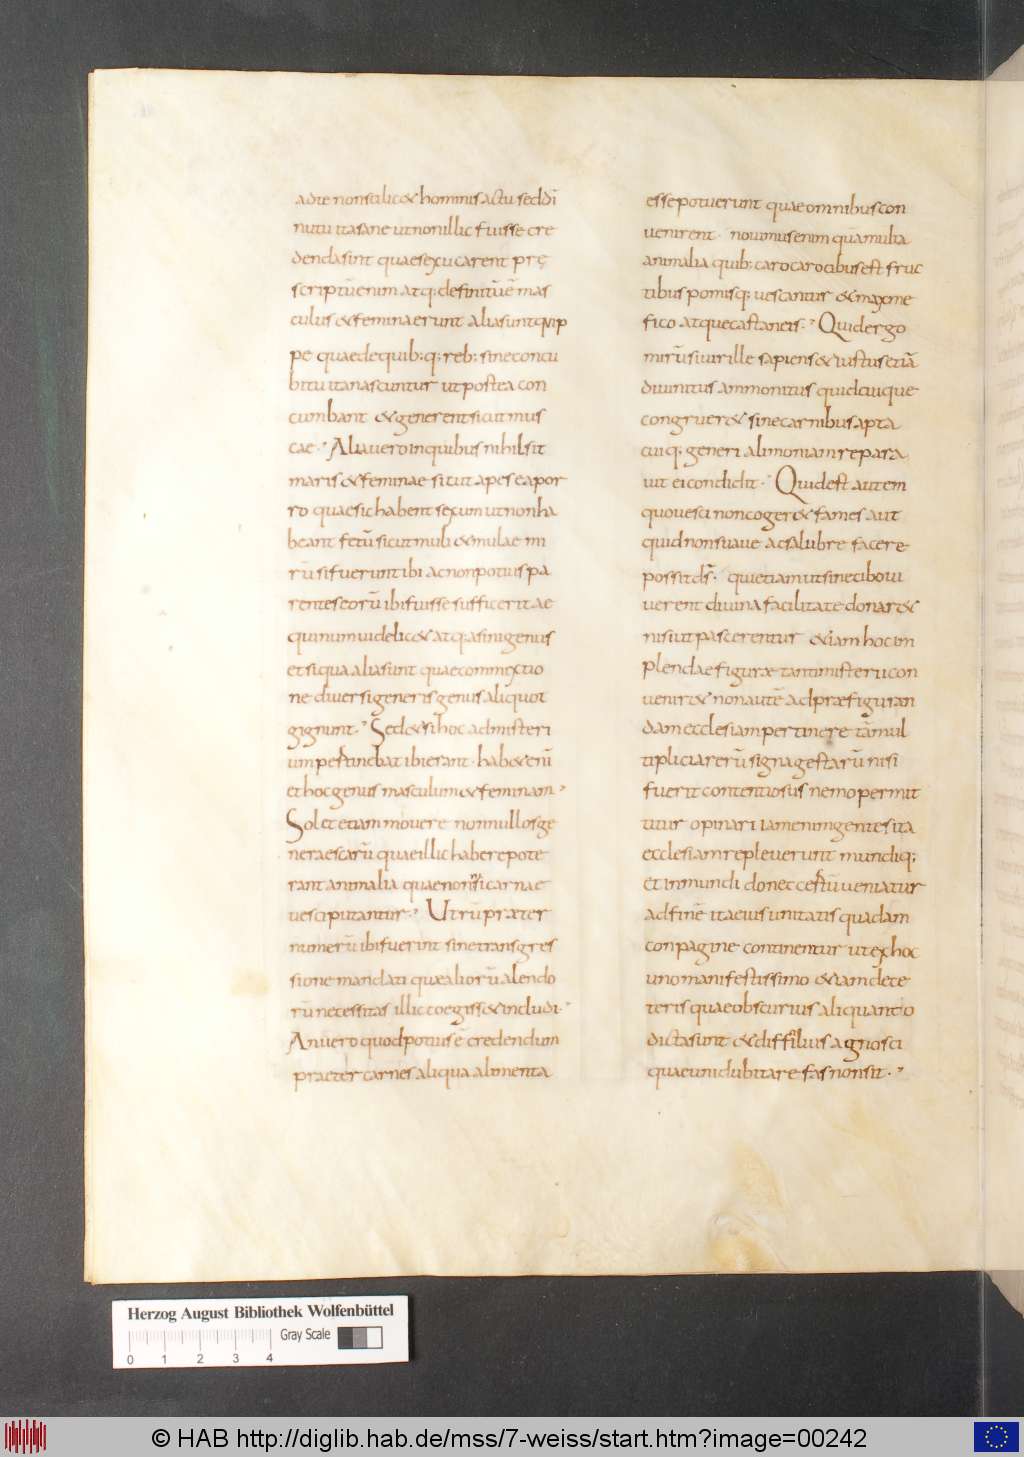 adie nonscilic& hominis actu sed di
nutu ita sane ut non illic fuisse cre
denda sint quae sexu carent prę
scriptũ enim atq; definitũ ẽ mas
culus & femina erunt alia sunt quip
pe quae de quib;q; reb; sine concu
bitu ita nascuntur ut postea con
cumbant & generent sicut mus
cae. Alia vero in quibus nihil sit
maris & feminae sicut apes ea por
ro quae sic habent sexum ut non ha
beant fetũ sicut muli & mulae mi
rũ si fuerunt ibi ac non potius pa
rentes eorũ ibi fuisse suffecerit ae
quinum videlic& atq; asini genus
et si qua alia sunt quae commextio
ne diversi generis genus aliquot
gignunt. Sed & si hoc ad misteri
um pertinebat ibi erant. hab& enĩ
et hoc genus masculum & feminam
Solet etiam movere nonnullos ge
nera escarũ quae illic habere pote
rant animalia quae non nisi carnae
vesci putantur. Utrũ præter
numerũ ibi fuerint sine transgres
sione mandati quæ aliorũ alendo
rũ necessitas illic coegiss& includi.
An vero quod potius ẽ credendum
praeter carnes aliqua alimenta
esse potuerunt quae omnibus con
venirent. novimus enim quã multa
animalia quib; caro cibus est fruc
tibus pomisq; vescantur & maxime
fico atque castaneis. Quid ergo
mirũ si vir ille sapiens & iustus etiã
divinitus ammonitus quid cuique
congruer& sine carnibus apta
cuiq; generi alimoniam repara
vit ei condidit. Quid est autem
quo vesci non coger& fames aut
quid non suave ac salubre facere
possit ds̃. qui etiam ut sine cibo vi
verent divina facilitate donar&
nisi ut pascerentur &iam hoc im
plendae figuræ tanti misterii con
venir& non autẽ ad præfiguran
dam ecclesiam pertinere tã mul
tiplicia rerũ signa gestarũ nisi
fuerit contentiosus nemo permit
titur opinari iam enim gentes ita
ecclesiam repleverunt mundiq;
et inmundi donec certũ veniatur
ad finẽ ita eius unitatis quadam
conpagine continentur ut ex hoc
uno manifestissimo &iam de ce
teris quae obscurius aliquanto
dicta sunt & difficilius agnosci
quaeunt dubitare fas non sit.
Herzog August Bibliothek Wolfenbüttel
Gray Scale
0 1 2 3 4
© HAB http://diglib.hab.de/mss/7-weiss/start.htm?image=00242